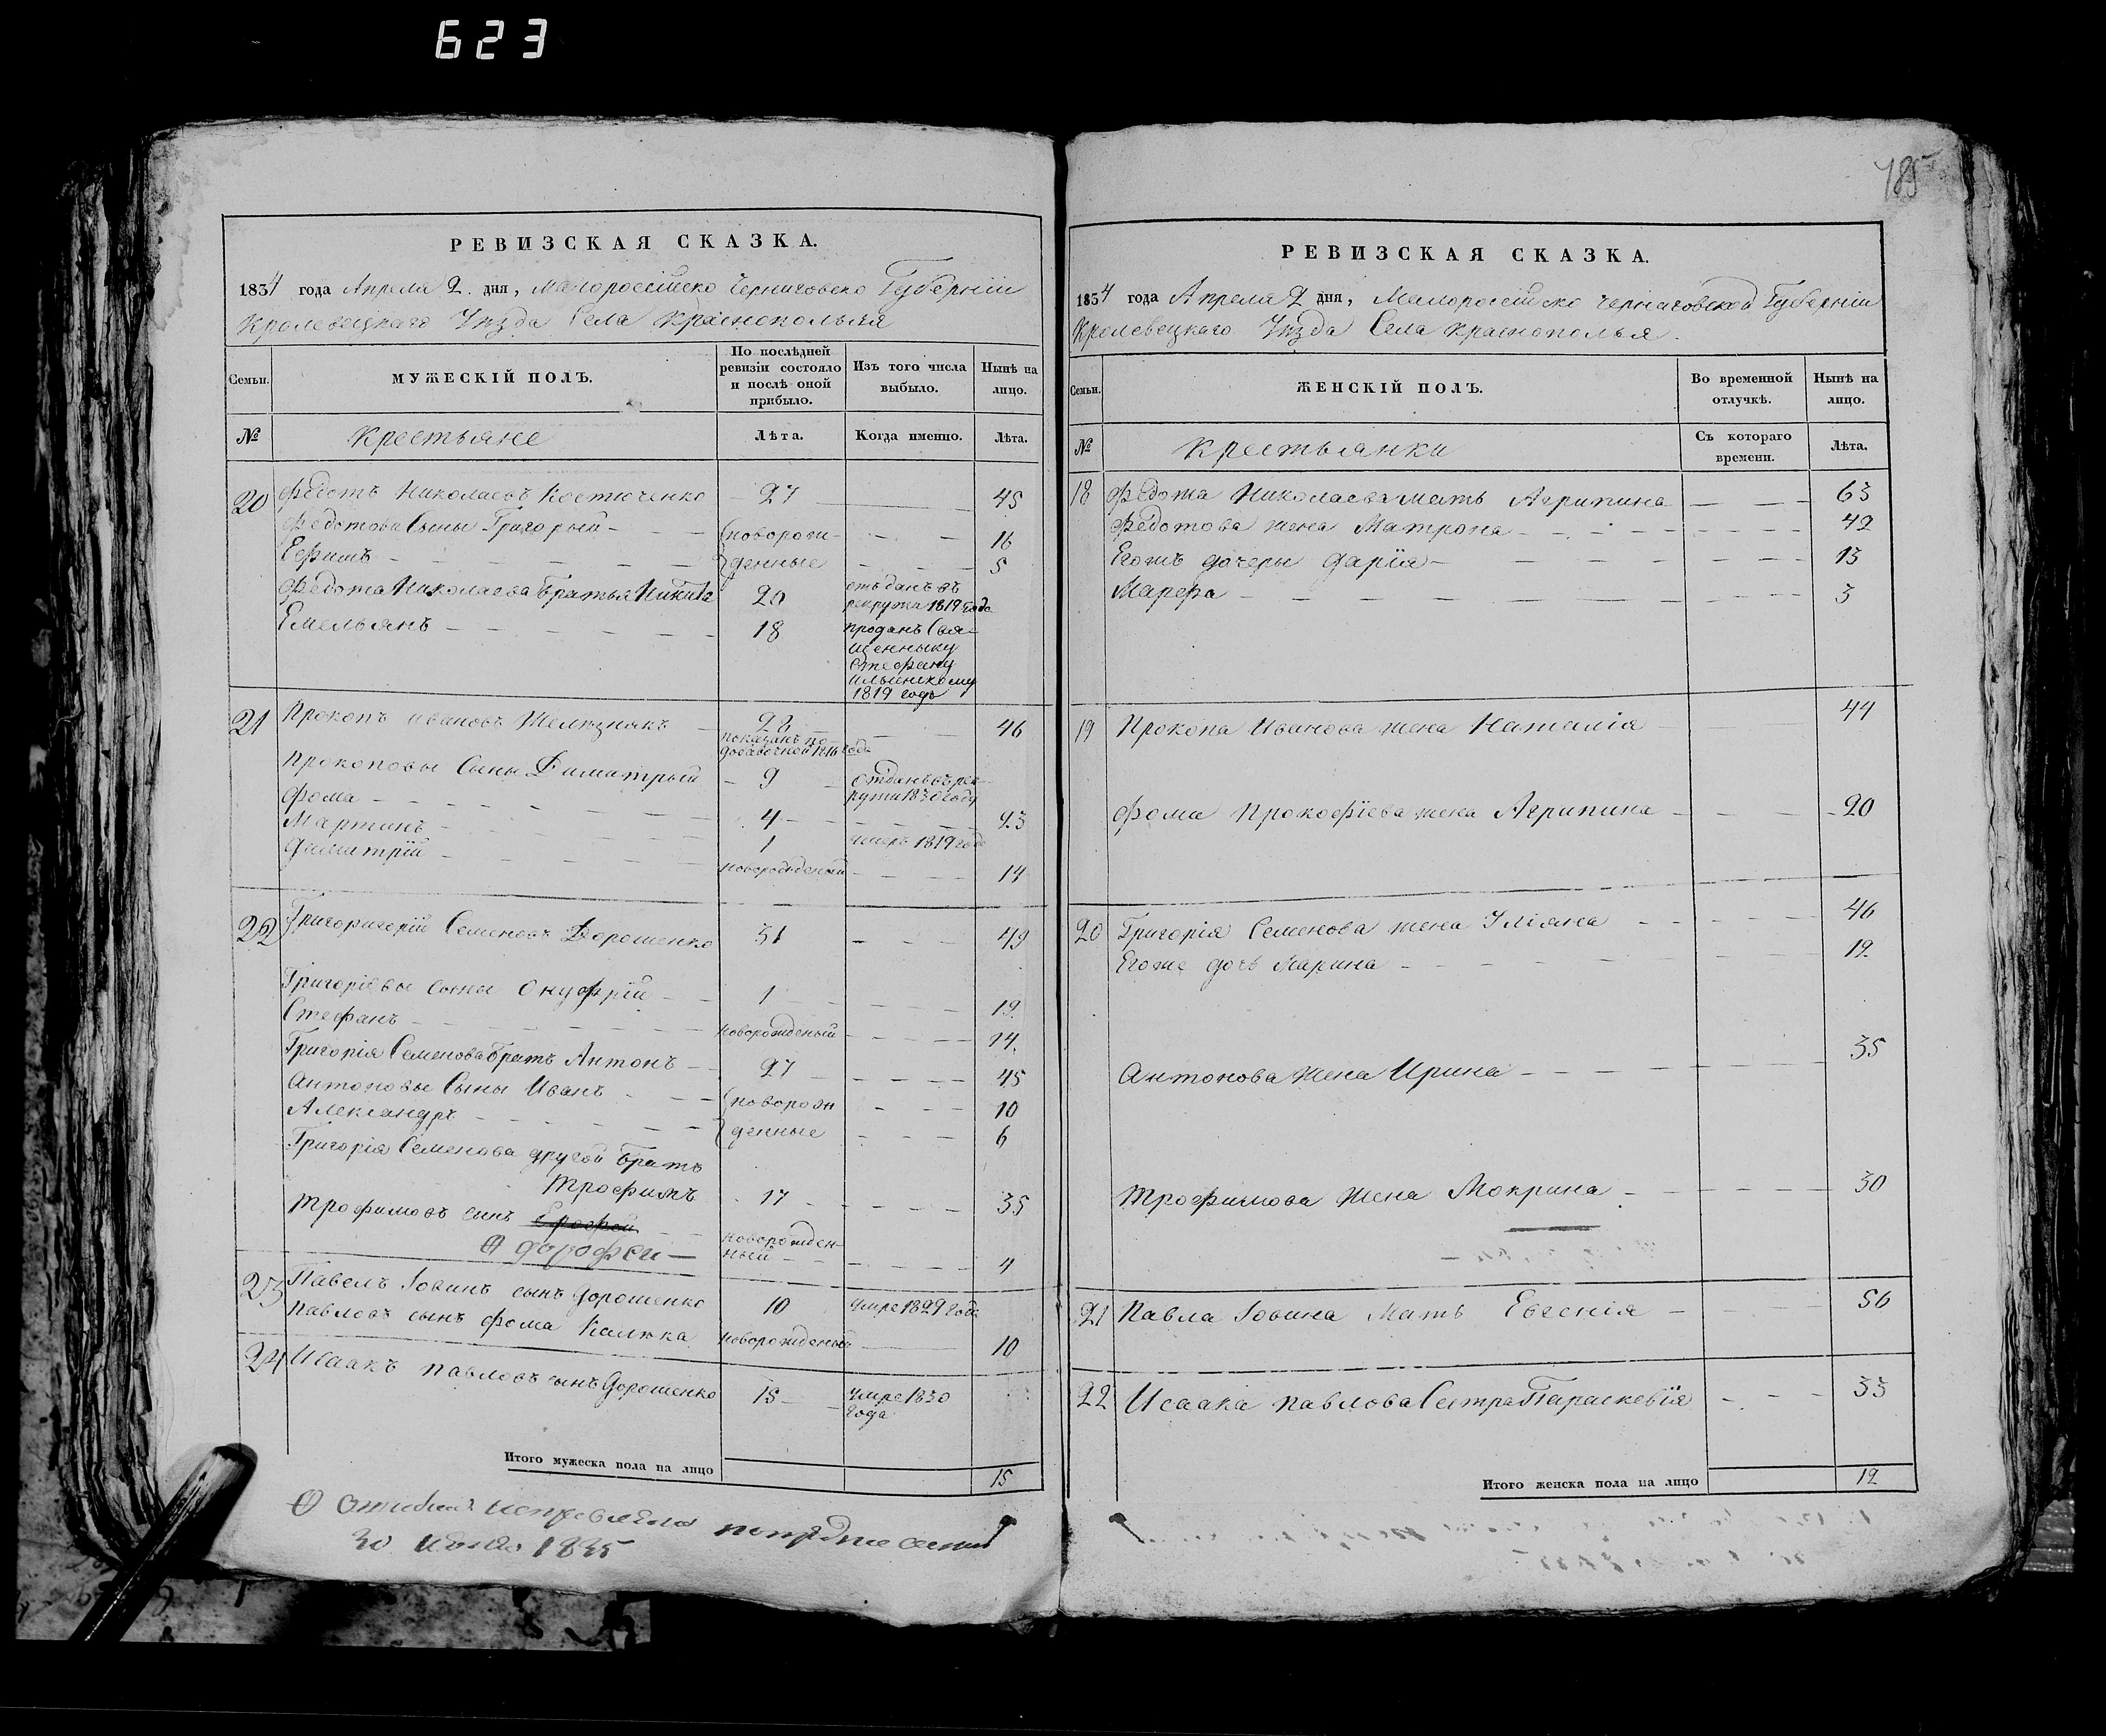 623
485
РЕВИЗСКАЯ СКАЗКА.
1834 года Апреля 2. дня, Малороссійско Черниговско Губерніи
Кролевецкаго Уѣзда Села Краснополья
Семьи.
МУЖЕСКІЙ ПОЛЪ.
По послѣдней ревизіи состояло и послѣ оной прибыло.
Изъ того числа выбыло.
Нынѣ на лицо.
№ Крестьяне Лѣта. Когда именно. Лѣта.
20 Федотъ Николаевъ Костюченко 27 45
Федотовы Сыны Григорый (новорож- 16
Ефимъ денные 5
Федота Николаева братья Никита 20 отъданъ въ рекрута 1819 года
Емельянъ 18 проданъ Свя-
щенныку
Стефану
Ильинскому
1819 годъ
21 Прокопъ Ивановъ Желѣзнякъ 28 46
показанъ по
добавочной 1816 года
Прокоповы Сыны Диматрый 9 отданъ въ рек-
рути 1830 году
Фома 4 23
Мартинъ 1 умеръ 1819 года
Диматрій новорожденый 14
22 Григоригорій Семеновъ Дорошенко 31 49
Григоріевы сыны Онуфрій 1 19
Стефанъ новорожденый 14.
Григорія Семенова братъ Антонъ 27 45
Антоновы Сыны Иванъ (новорож 10
Александръ денные 6
Григорія Семенова другой братъ
Трофимъ 17 35
Трофимовъ сынъ Ерофей новорожден-
Дорофеи ный 4
23 Павелъ Іовинъ сынъ Дорошенко 10 умре 1829 года
Павловъ сынъ Фома Калюка новорожденый 10
24 Исаакъ Павловъ сынъ Дорошенко 15 умре 1830
года
Итого мужеска пола на лицо 15
30 1835
РЕВИЗСКАЯ СКАЗКА.
1834 года Апреля 2 дня, Малоросійско Черниговской Губерніи
Кролевецкаго Уѣзда Села Краснополья.
Семьи.
ЖЕНСКІЙ ПОЛЪ.
Во временной отлучкѣ.
Нынѣ на лицо.
№ Крестьянки Съ котораго времени. Лѣта.
18 Федота Николаева мать Агрипина 63
Федотова жена Матрона 42
Егожъ дочеры Дарїя 13
Марфа 3
19 Прокопа Иванова жена Наталія 44
Фома Прокофїева жена Агрипина 20
20 Григорія Семенова жена Уліяна 46
Егоже дочъ Марина 12
Антонова жена Ирина 35
Трофимова жена Мокрина 30
21 Павла Іовина Мать Евгенія 56
22 Исаака Павлова Сестра Параскевїя 33
Итого женска пола на лицо 12